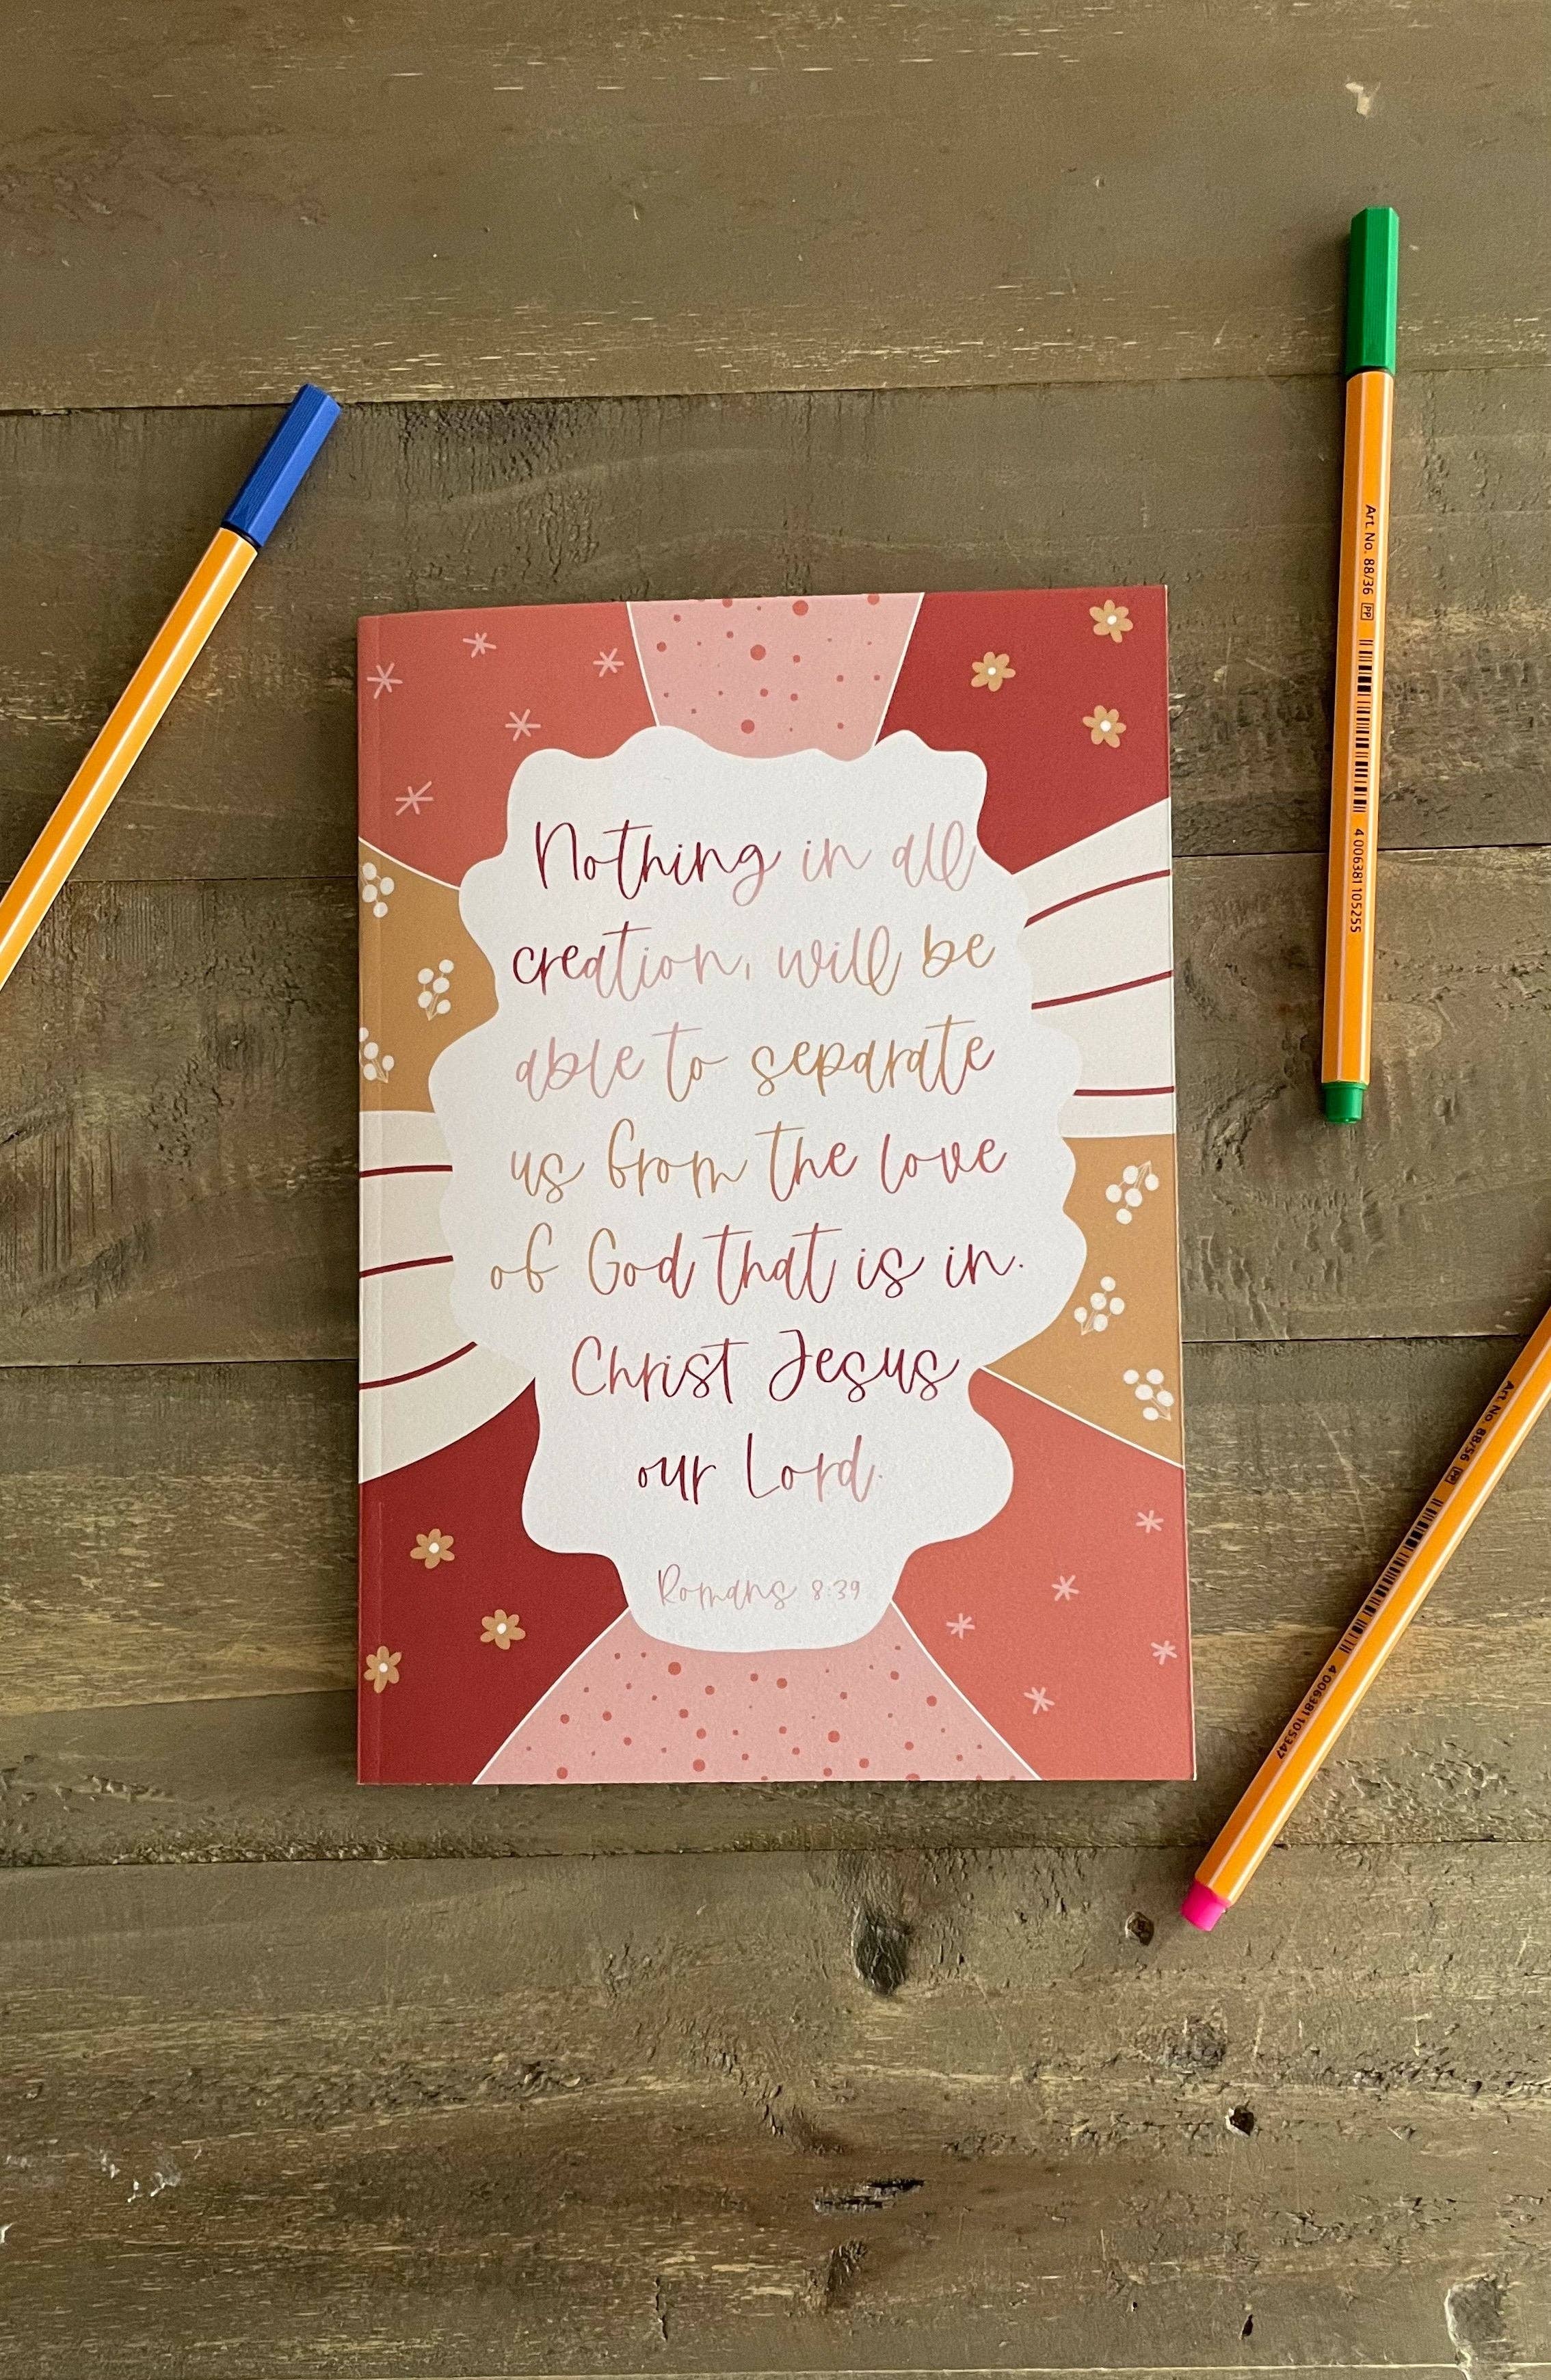 Nothing in all
creation, will be
able to separate
us from the love
of God that is in.
Christ Jesus
our Lord.
Romans 8:39
Art. No. 88/36 PP
4 006381 105255
Art. No. 88/56 PP
4 006381 105347